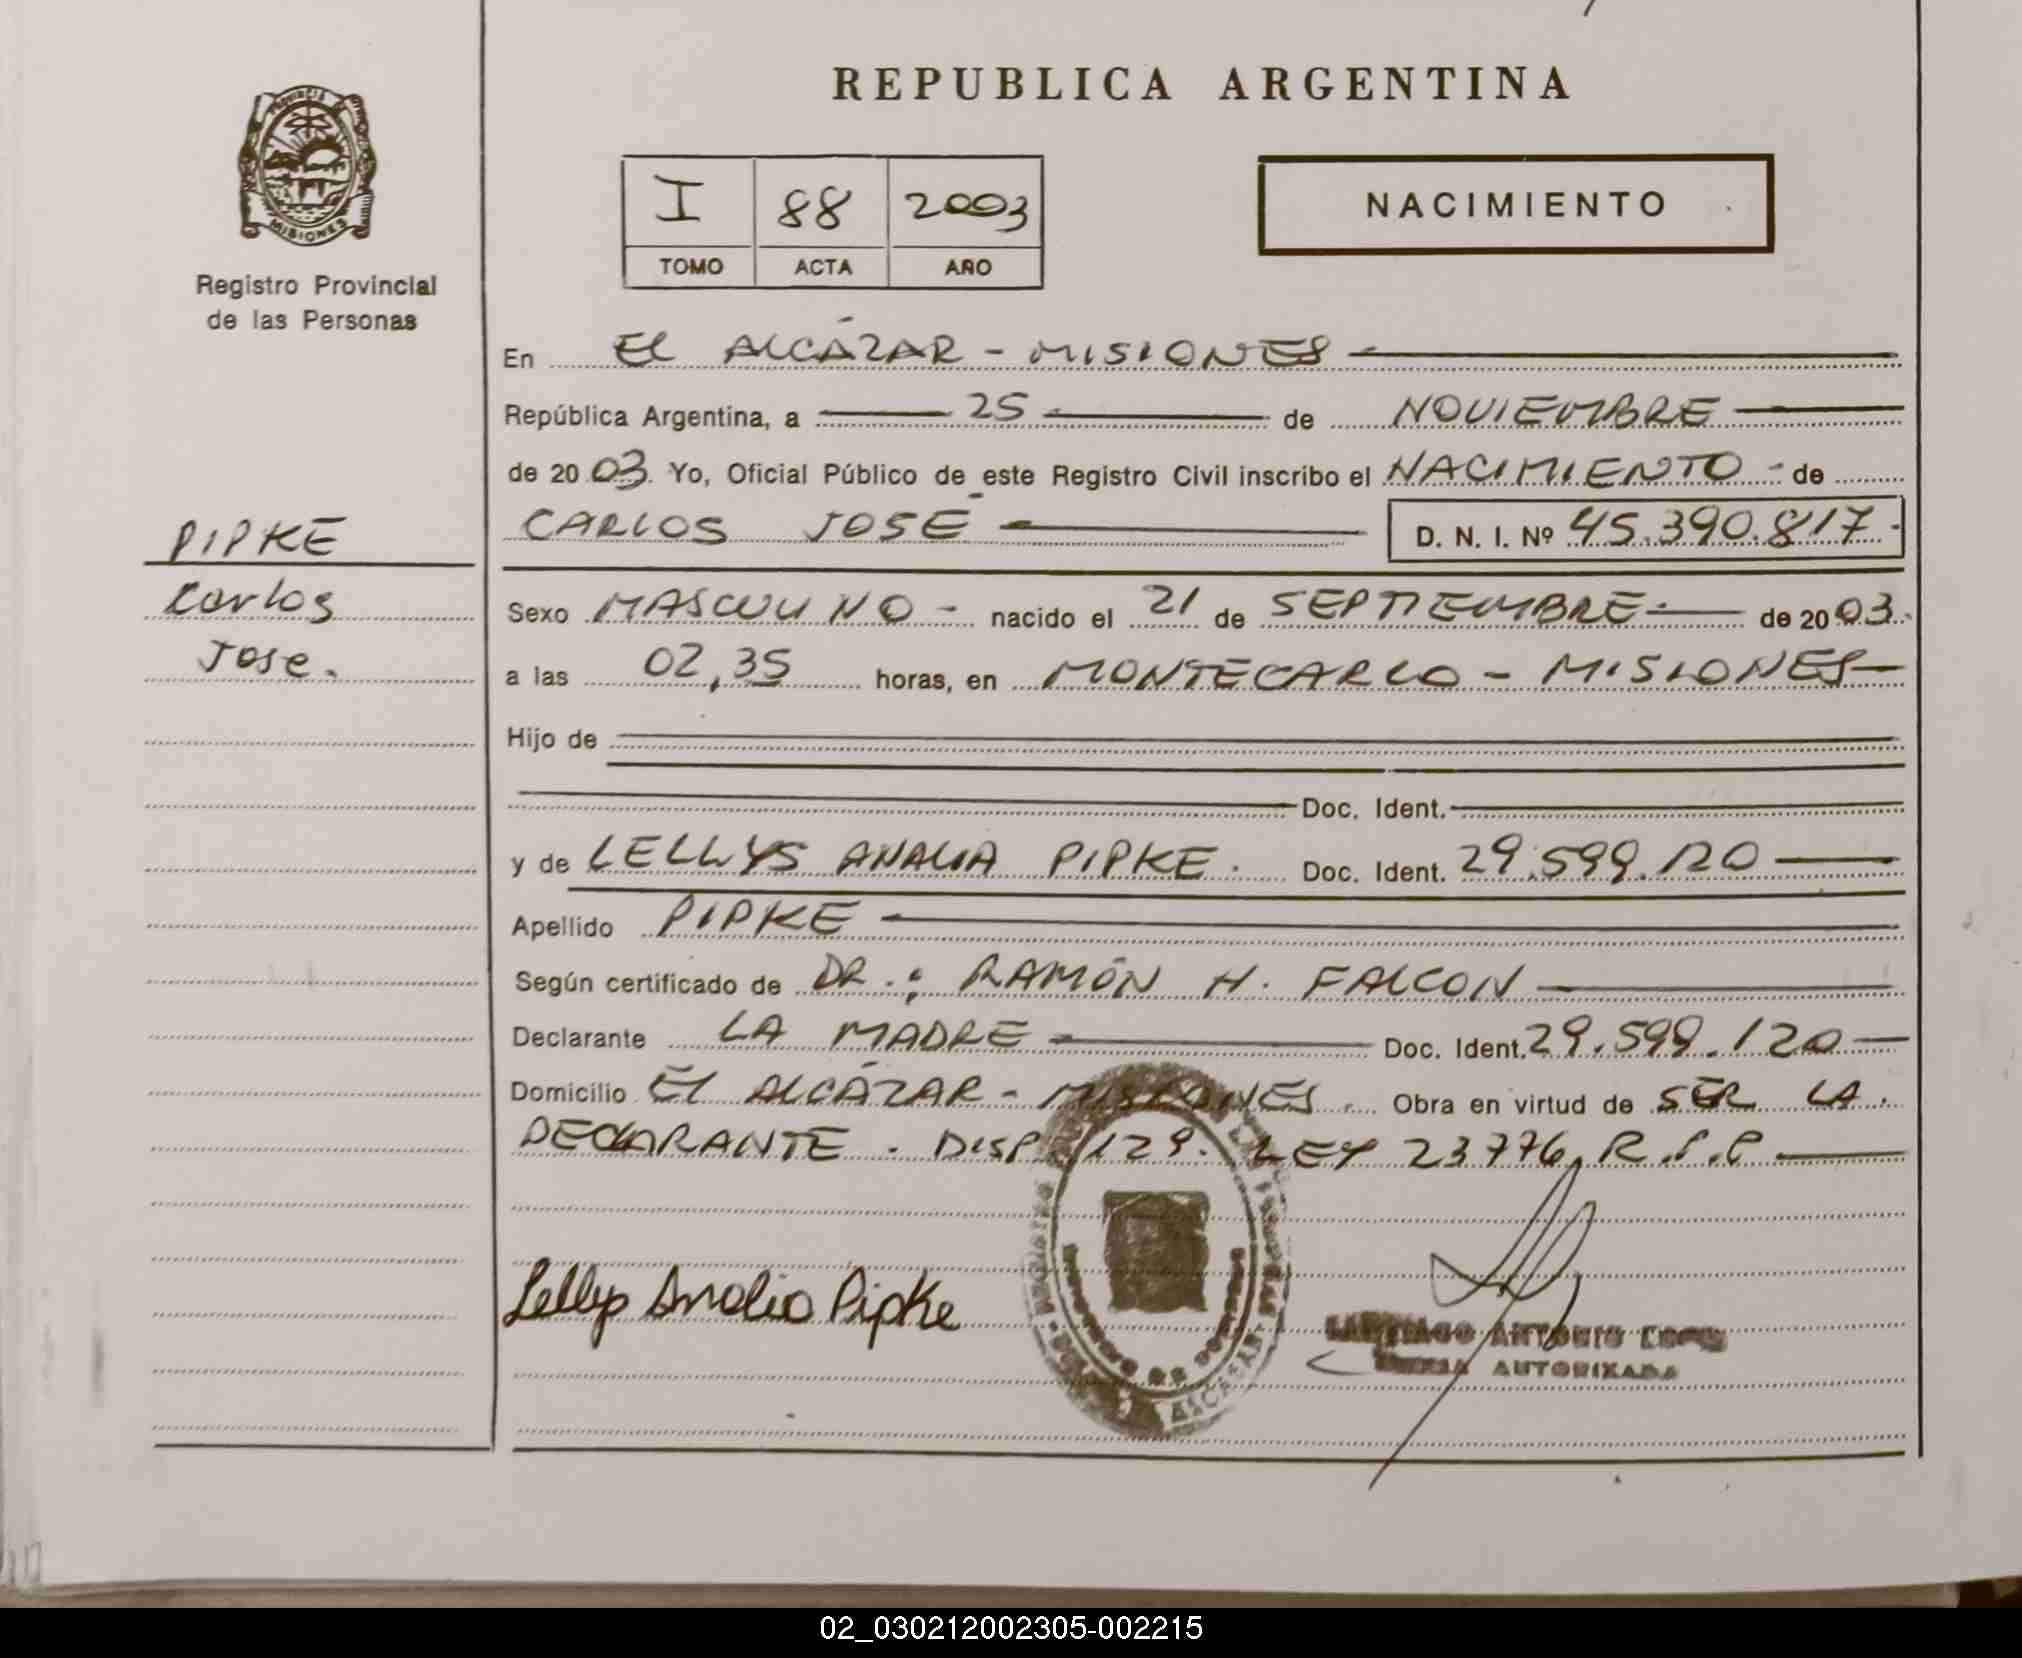 REPUBLICA ARGENTINA
PROVINCIA DE MISIONES
Registro Provincial
de las Personas
I 88 2003
TOMO ACTA AÑO
NACIMIENTO
En EL ALCÁZAR - MISIONES
República Argentina, a 25 de NOVIEMBRE
de 2003. Yo, Oficial Público de este Registro Civil inscribo el NACIMIENTO - de
CARLOS JOSÉ D. N. I. Nº 45.390.817.
PIPKE
Carlos
Jose.
Sexo MASCULINO - nacido el 21 de SEPTIEMBRE. de 2003.
a las 02,35 horas, en MONTECARLO - MISIONES
Hijo de
Doc. Ident.
y de LELLYS ANALIA PIPKE. Doc. Ident. 29.599.120
Apellido PIPKE
Según certificado de DR.: RAMÓN H. FALCON
Declarante LA MADRE Doc. Ident. 29.599.120
Domicilio EL ALCÁZAR - MISIONES. Obra en virtud de SER LA
DECLARANTE. DISP. 129. LEY 23776, R.P.P
Lellys Analia Pipke
SANTIAGO ANTONIO
AUTORIZADA
02_030212002305-002215